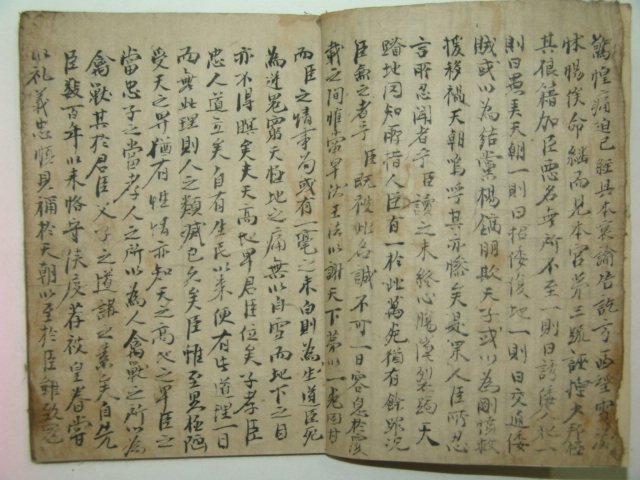 驚惶痛迫已經具本稟諭告訖方西望雪涕
怵惕俟命繼而見本官第三疏誣陷大
其狼籍加臣惡名無所不至一則曰誘倭人犯一
則曰愚弄天朝一則曰招倭復地一則曰交通倭
賊或以為結黨楊鎬朋欺天子或以為剛
援移禍天朝嗚呼其亦慘矣是眾人臣所忍
言所忍聞者乎臣讀之未終心膽俱裂跼天
蹐地罔知所措人臣有一於此萬死猶有餘罪況
臣兼之者乎臣既被此名誠不可一日容息於覆
載之間惟當早決王法以謝天下第以一死固甘
而臣之情事苟或有一毫之未白則為生道臣死
為迷鬼窮天極地之痛無以自雪而地下之目
亦不得瞑矣夫天高地卑君臣位矣子孝臣
忠人道立矣自有生民以來便有此道理一日
而無此理則人之類滅已久矣臣惟至愚極陋
受天之畀猶有性情亦知天之高地之卑臣之
當忠子之當孝人之所以為人禽獸之所以為
禽獸其於君臣父子之道講之素矣自先
臣襲百年以來恪守侯度荐被皇眷嘗
以禮義忠順見稱於天朝以至於臣雖